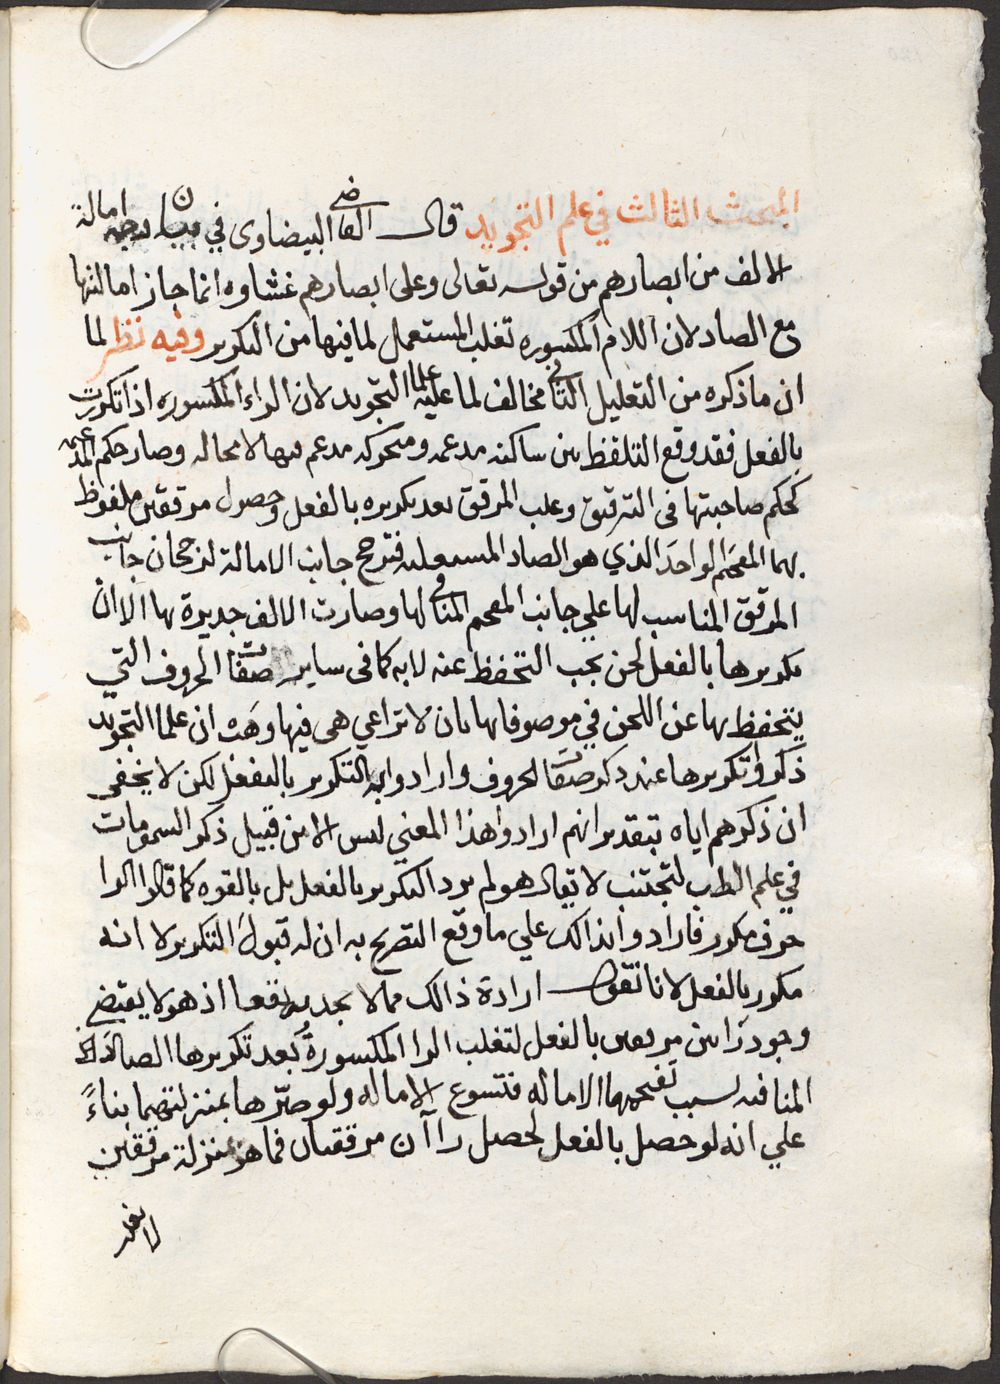 المبحث الثالث في علم التجويد قال القاضي البيضاوى في بيان وجه امالة
الالف من ابصارهم من قوله تعالى وعلى ابصارهم غشاوه انما جاز امالتها
مع الصاد لان اللام المكسوره تغلب المستعمل لما فيها من التكرير وفيه نظر لما
ان ما ذكره من التعليل الثاني مخالف لما عليه علما التجويد لان الراء المكسوره اذا تكررت
بالفعل فقد وقع التلفظ بين ساكنه مدغمه ومتحركه مدغم فيها لا محاله وصار حكم المدغمه
كحكم صاحبتها في الترقيق وغلب المرقق بعد تكريره بالفعل وحصول مرققين ملفوظ
بهما المفخم الواحد الذي هو الصاد المستعليه فترجح جانب الامالة لرجحان جانب
المرقق المناسب لها علي جانب المفخم المنافى لها وصارت الالف جديرة بها الا ان
تكريرها بالفعل لحن يجب التحفظ عنه لا به كما فى ساير صفات الحروف التي
يتحفظ بها عن اللحن في موصوفاتها بان لا تراعي هى فيها وهب ان علما التجويد
ذكروا تكريرها عند ذكر صفات الحروف وارادوا به التكرير بالفعل لكن لا يخفى
ان ذكرهم اياه بتقدير انهم ارادوا هذا المعني ليس الا من قبيل ذكر السمومات
في علم الطب لتجتنب لا يقال هو لم يرد التكرير بالفعل بل بالقوه كما قالوا الرا
حرف مكرر فارادوا بذالك علي ما وقع التصريح به ان له قبول التكرير لا انه
مكرر بالفعل لانا نقول ارادة ذالك مما لا يجديه نفعا اذ هو لا يقتضي
وجود راين مرققين بالفعل لتغلب الرا المكسورةُ بعد تكريرها الصاد
المنافيه لسبب تفخيمها الاماله فتسوغ الاماله ولو صيّرها بمنزلتهما بناءً
علي انه لو حصل بالفعل لحصل راآن مرققتان فما هو بمنزلة مرققين